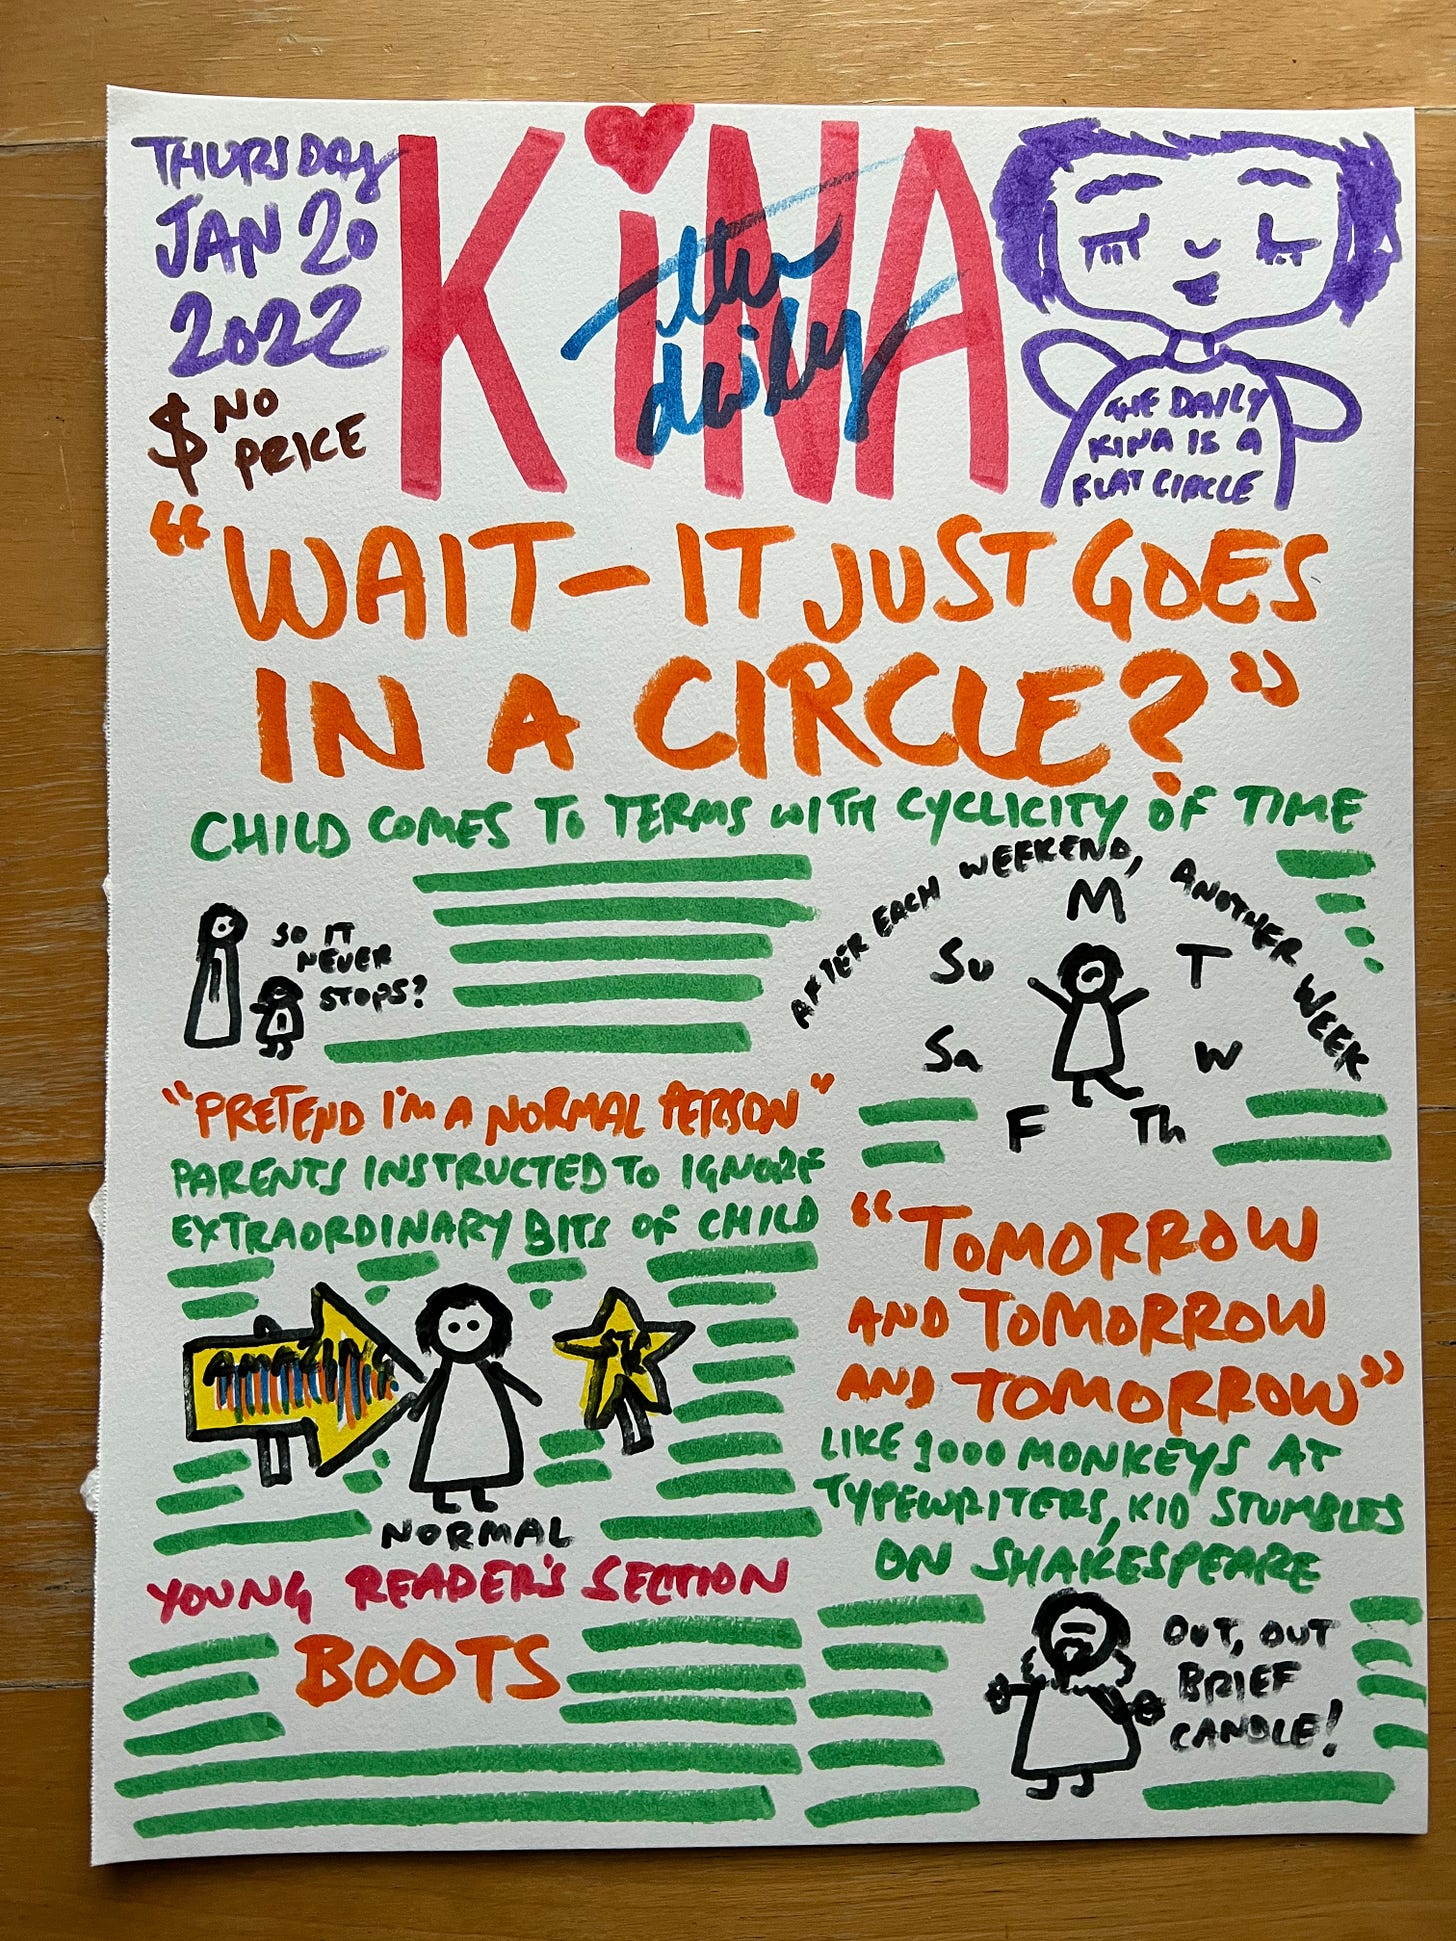 THURSDAY
JAN 20
2022
$ NO
PRICE
KiNA
the
daily
THE DAILY
KINA IS A
FLAT CIRCLE
"WAIT—IT JUST GOES
IN A CIRCLE?"
CHILD COMES TO TERMS WITH CYCLICITY OF TIME
SO IT
NEVER
STOPS?
AFTER EACH WEEKEND, ANOTHER WEEK
M
T
W
Th
F
Sa
Su
"PRETEND I'M A NORMAL PERSON"
PARENTS INSTRUCTED TO IGNORE
EXTRAORDINARY BITS OF CHILD
AMAZING
NORMAL
YOUNG READER'S SECTION
BOOTS
"TOMORROW
AND TOMORROW
AND TOMORROW"
LIKE 1000 MONKEYS AT
TYPEWRITERS, KID STUMBLES
ON SHAKESPEARE
OUT, OUT
BRIEF
CANDLE!